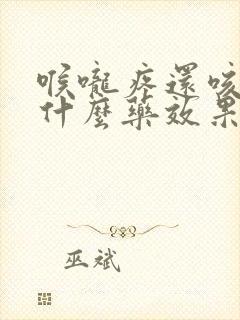 喉嚨疼還咳
什麼藥效果
巫斌